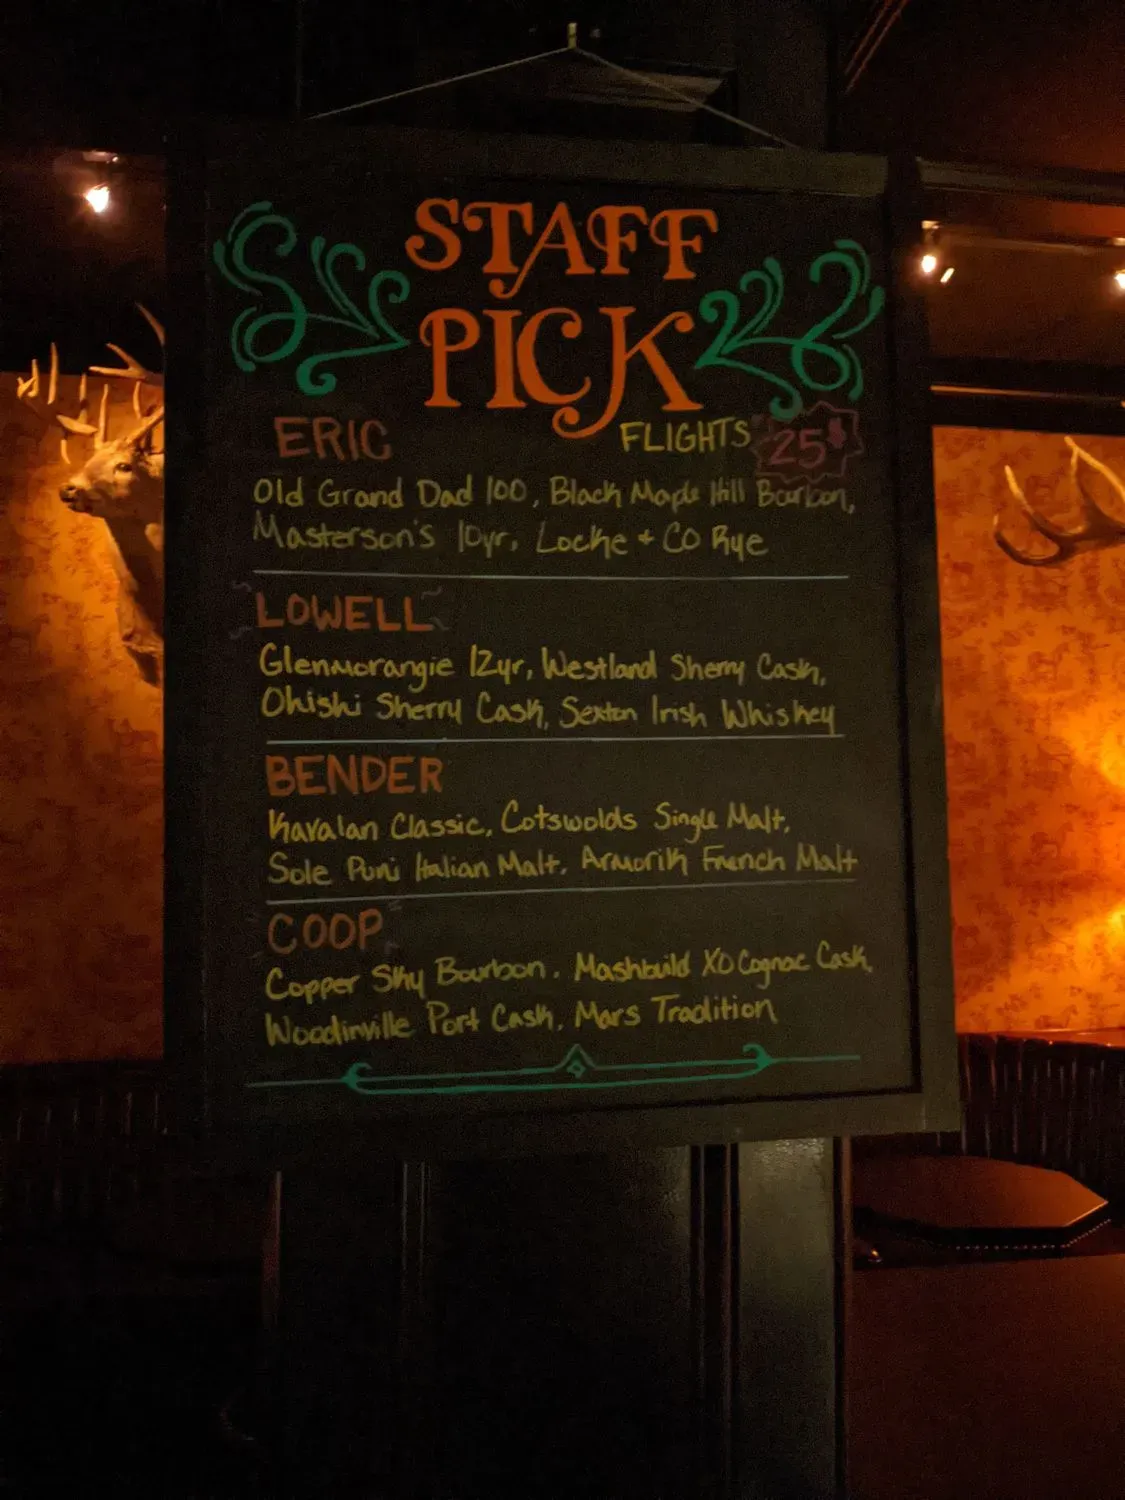 STAFF
PICK
ERIC
FLIGHTS 25$
Old Grand Dad 100, Black Maple Hill Bourbon,
Masterson's 10yr, Locke + CO Rye
LOWELL
Glenmorangie 12yr, Westland Sherry Cask,
Ohishi Sherry Cask, Sexton Irish Whiskey
BENDER
Kavalan Classic, Cotswolds Single Malt,
Sole Puni Italian Malt, Armorik French Malt
COOP
Copper Sky Bourbon, Mashbuild XO Cognac Cask,
Woodinville Port Cask, Mars Tradition